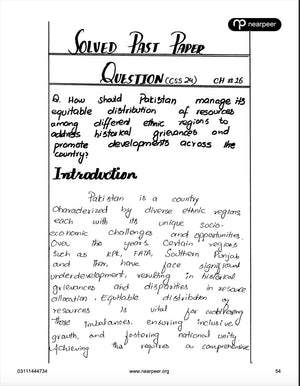 nearpeer
SOLVED PAST PAPER
QUESTION (CSS 24) CH # 16
Q. How should Pakistan manage its
equitable distribution of resources
among different ethnic regions to
address historical grievances and
promote developments across the
country?
Introduction
Pakistan is a country
characterized by diverse ethnic regions
each with its unique socio-
economic challenges and opportunities.
Over the years certain regions
such as KPK, FATA, Southern Punjab
and have face significant
underdevelopment, resulting in historical
grievances and disparities in resource
allocation. Equitable distribution of
resources is vital for
these imbalances, ensuring inclusive
growth, and fostering national unity
Achieving requires a comprehensive
03111444734 www.nearpeer.org 54